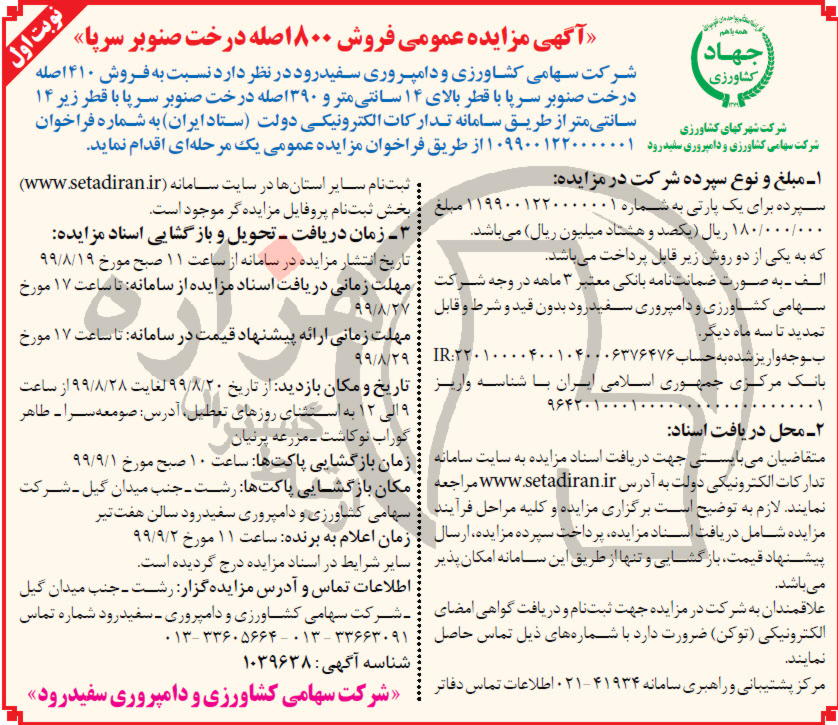 نوبت اول
«آگهی مزایده عمومی فروش ۸۰۰ اصله درخت صنوبر سرپا»
همه با هم
جهاد
کشاورزی
۱۳۷۹
شرکت شهرکهای کشاورزی
شرکت سهامی کشاورزی و دامپروری سفیدرود
شرکت سهامی کشاورزی و دامپروری سفیدرود در نظر دارد نسبت به فروش ۴۱۰ اصله
درخت صنوبر سرپا با قطر بالای ۱۴ سانتی‌متر و ۳۹۰ اصله درخت صنوبر سرپا با قطر زیر ۱۴
سانتی‌متر از طریق سامانه تدارکات الکترونیکی دولت (ستاد ایران) به شماره فراخوان
۱۰۹۹۰۰۱۲۲۰۰۰۰۰۰۱ از طریق فراخوان مزایده عمومی یک مرحله‌ای اقدام نماید.
۱ـ مبلغ و نوع سپرده شرکت در مزایده:
سپرده برای یک پارتی به شماره ۱۱۹۹۰۰۱۲۲۰۰۰۰۰۰۱ مبلغ
۱۸۰/۰۰۰/۰۰۰ ریال (یکصد و هشتاد میلیون ریال) می‌باشد.
که به یکی از دو روش زیر قابل پرداخت می‌باشد.
الف ـ به صورت ضمانت‌نامه بانکی معتبر ۳ ماهه در وجه شرکت
سهامی کشاورزی و دامپروری سفیدرود بدون قید و شرط و قابل
تمدید تا سه ماه دیگر.
ب ـ وجه واریز شده به حساب IR:۲۲۰۱۰۰۰۰۴۰۰۱۰۴۰۰۰۶۳۷۶۴۷۶
بانک مرکزی جمهوری اسلامی ایران با شناسه واریز
۹۶۴۲۰۱۰۰۰۱۰۰۰۰۰۰۰۰۰۰۰۰۰۰۰۰۰۱
۲ـ محل دریافت اسناد:
متقاضیان می‌بایستی جهت دریافت اسناد مزایده به سایت سامانه
تدارکات الکترونیکی دولت به آدرس www.setadiran.ir مراجعه
نمایند. لازم به توضیح است برگزاری مزایده و کلیه مراحل فرآیند
مزایده شامل دریافت اسناد مزایده، پرداخت سپرده مزایده، ارسال
پیشنهاد قیمت، بازگشایی و تنها از طریق این سامانه امکان‌پذیر
می‌باشد.
علاقمندان به شرکت در مزایده جهت ثبت‌نام و دریافت گواهی امضای
الکترونیکی (توکن) ضرورت دارد با شماره‌های ذیل تماس حاصل
نمایند.
مرکز پشتیبانی و راهبری سامانه ۴۱۹۳۴-۰۲۱ اطلاعات تماس دفاتر
ثبت‌نام سایر استان‌ها در سایت سامانه (www.setadiran.ir)
بخش ثبت‌نام پروفایل مزایده‌گر موجود است.
۳ ـ زمان دریافت ـ تحویل و بازگشایی اسناد مزایده:
تاریخ انتشار مزایده در سامانه از ساعت ۱۱ صبح مورخ ۹۹/۸/۱۹
مهلت زمانی دریافت اسناد مزایده از سامانه: تا ساعت ۱۷ مورخ
۹۹/۸/۲۷
مهلت زمانی ارائه پیشنهاد قیمت در سامانه: تا ساعت ۱۷ مورخ
۹۹/۸/۲۹
تاریخ و مکان بازدید: از تاریخ ۹۹/۸/۲۰ لغایت ۹۹/۸/۲۸ از ساعت
۹ الی ۱۲ به استثنای روزهای تعطیل، آدرس: صومعه‌سرا ـ طاهر
گوراب نوکاشت ـ مزرعه پرنیان
زمان بازگشایی پاکت‌ها: ساعت ۱۰ صبح مورخ ۹۹/۹/۱
مکان بازگشایی پاکت‌ها: رشت ـ جنب میدان گیل ـ شرکت
سهامی کشاورزی و دامپروری سفیدرود سالن هفت تیر
زمان اعلام به برنده: ساعت ۱۱ مورخ ۹۹/۹/۲
سایر شرایط در اسناد مزایده درج گردیده است.
اطلاعات تماس و آدرس مزایده‌گزار: رشت ـ جنب میدان گیل
ـ شرکت سهامی کشاورزی و دامپروری ـ سفیدرود شماره تماس
۳۳۶۶۳۰۹۱-۰۱۳ - ۳۳۶۰۵۶۶۴-۰۱۳
شناسه آگهی: ۱۰۳۹۶۳۸
«شرکت سهامی کشاورزی و دامپروری سفیدرود»
هزاره